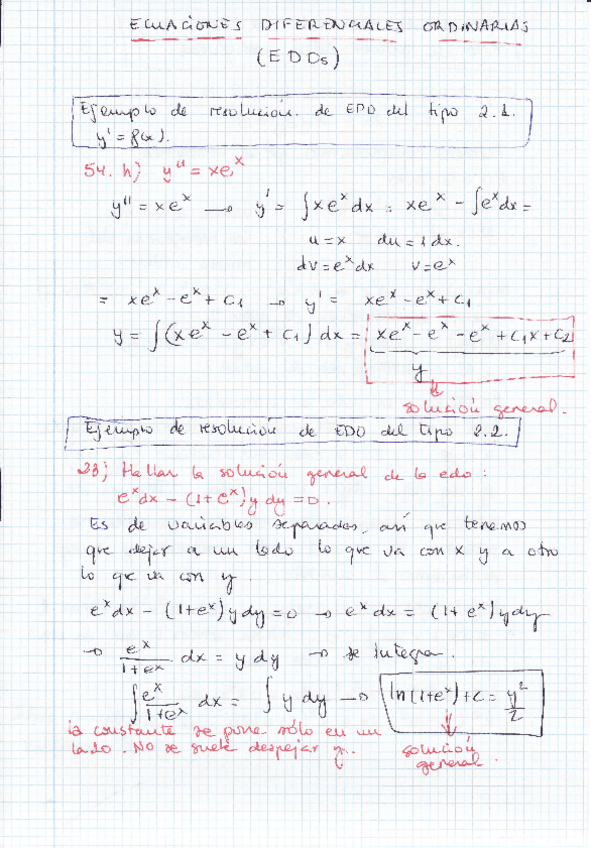 ECUACIONES DIFERENCIALES ORDINARIAS
(EDOs)
Ejemplo de resolución de EDO del tipo 2.1.
y' = f(x).
54. h) y'' = xeˣ
y'' = xeˣ → y' = ∫xeˣdx = xeˣ - ∫eˣdx =
u = x du = 1dx.
dv = eˣdx v = eˣ
= xeˣ - eˣ + C₁ → y' = xeˣ - eˣ + C₁
y = ∫(xeˣ - eˣ + C₁)dx = xeˣ - eˣ - eˣ + C₁x + C₂
y
solución general.
Ejemplo de resolución de EDO del tipo 2.2.
23) Hallar la solución general de la edo:
eˣdx - (1+eˣ)y dy = 0.
Es de variables separadas, así que tenemos
que dejar a un lado lo que va con x y a otro
lo que va con y.
eˣdx - (1+eˣ)ydy = 0 → eˣdx = (1+eˣ)ydy
→ eˣ/(1+eˣ) dx = y dy → se integra.
∫eˣ/(1+eˣ) dx = ∫y dy → ln(1+eˣ)+C = y²/2
la constante se pone sólo en un
lado. No se suele despejar y.
solución
general.